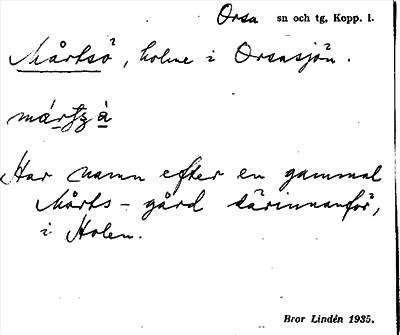 Orsa sn och tg, Kopp. l.
Mårtsö, holme i Orsasjön.
mártzà
Har namn efter en gammal
Mårts-gård därinnanför,
i Holen.
Bror Lindén 1935.